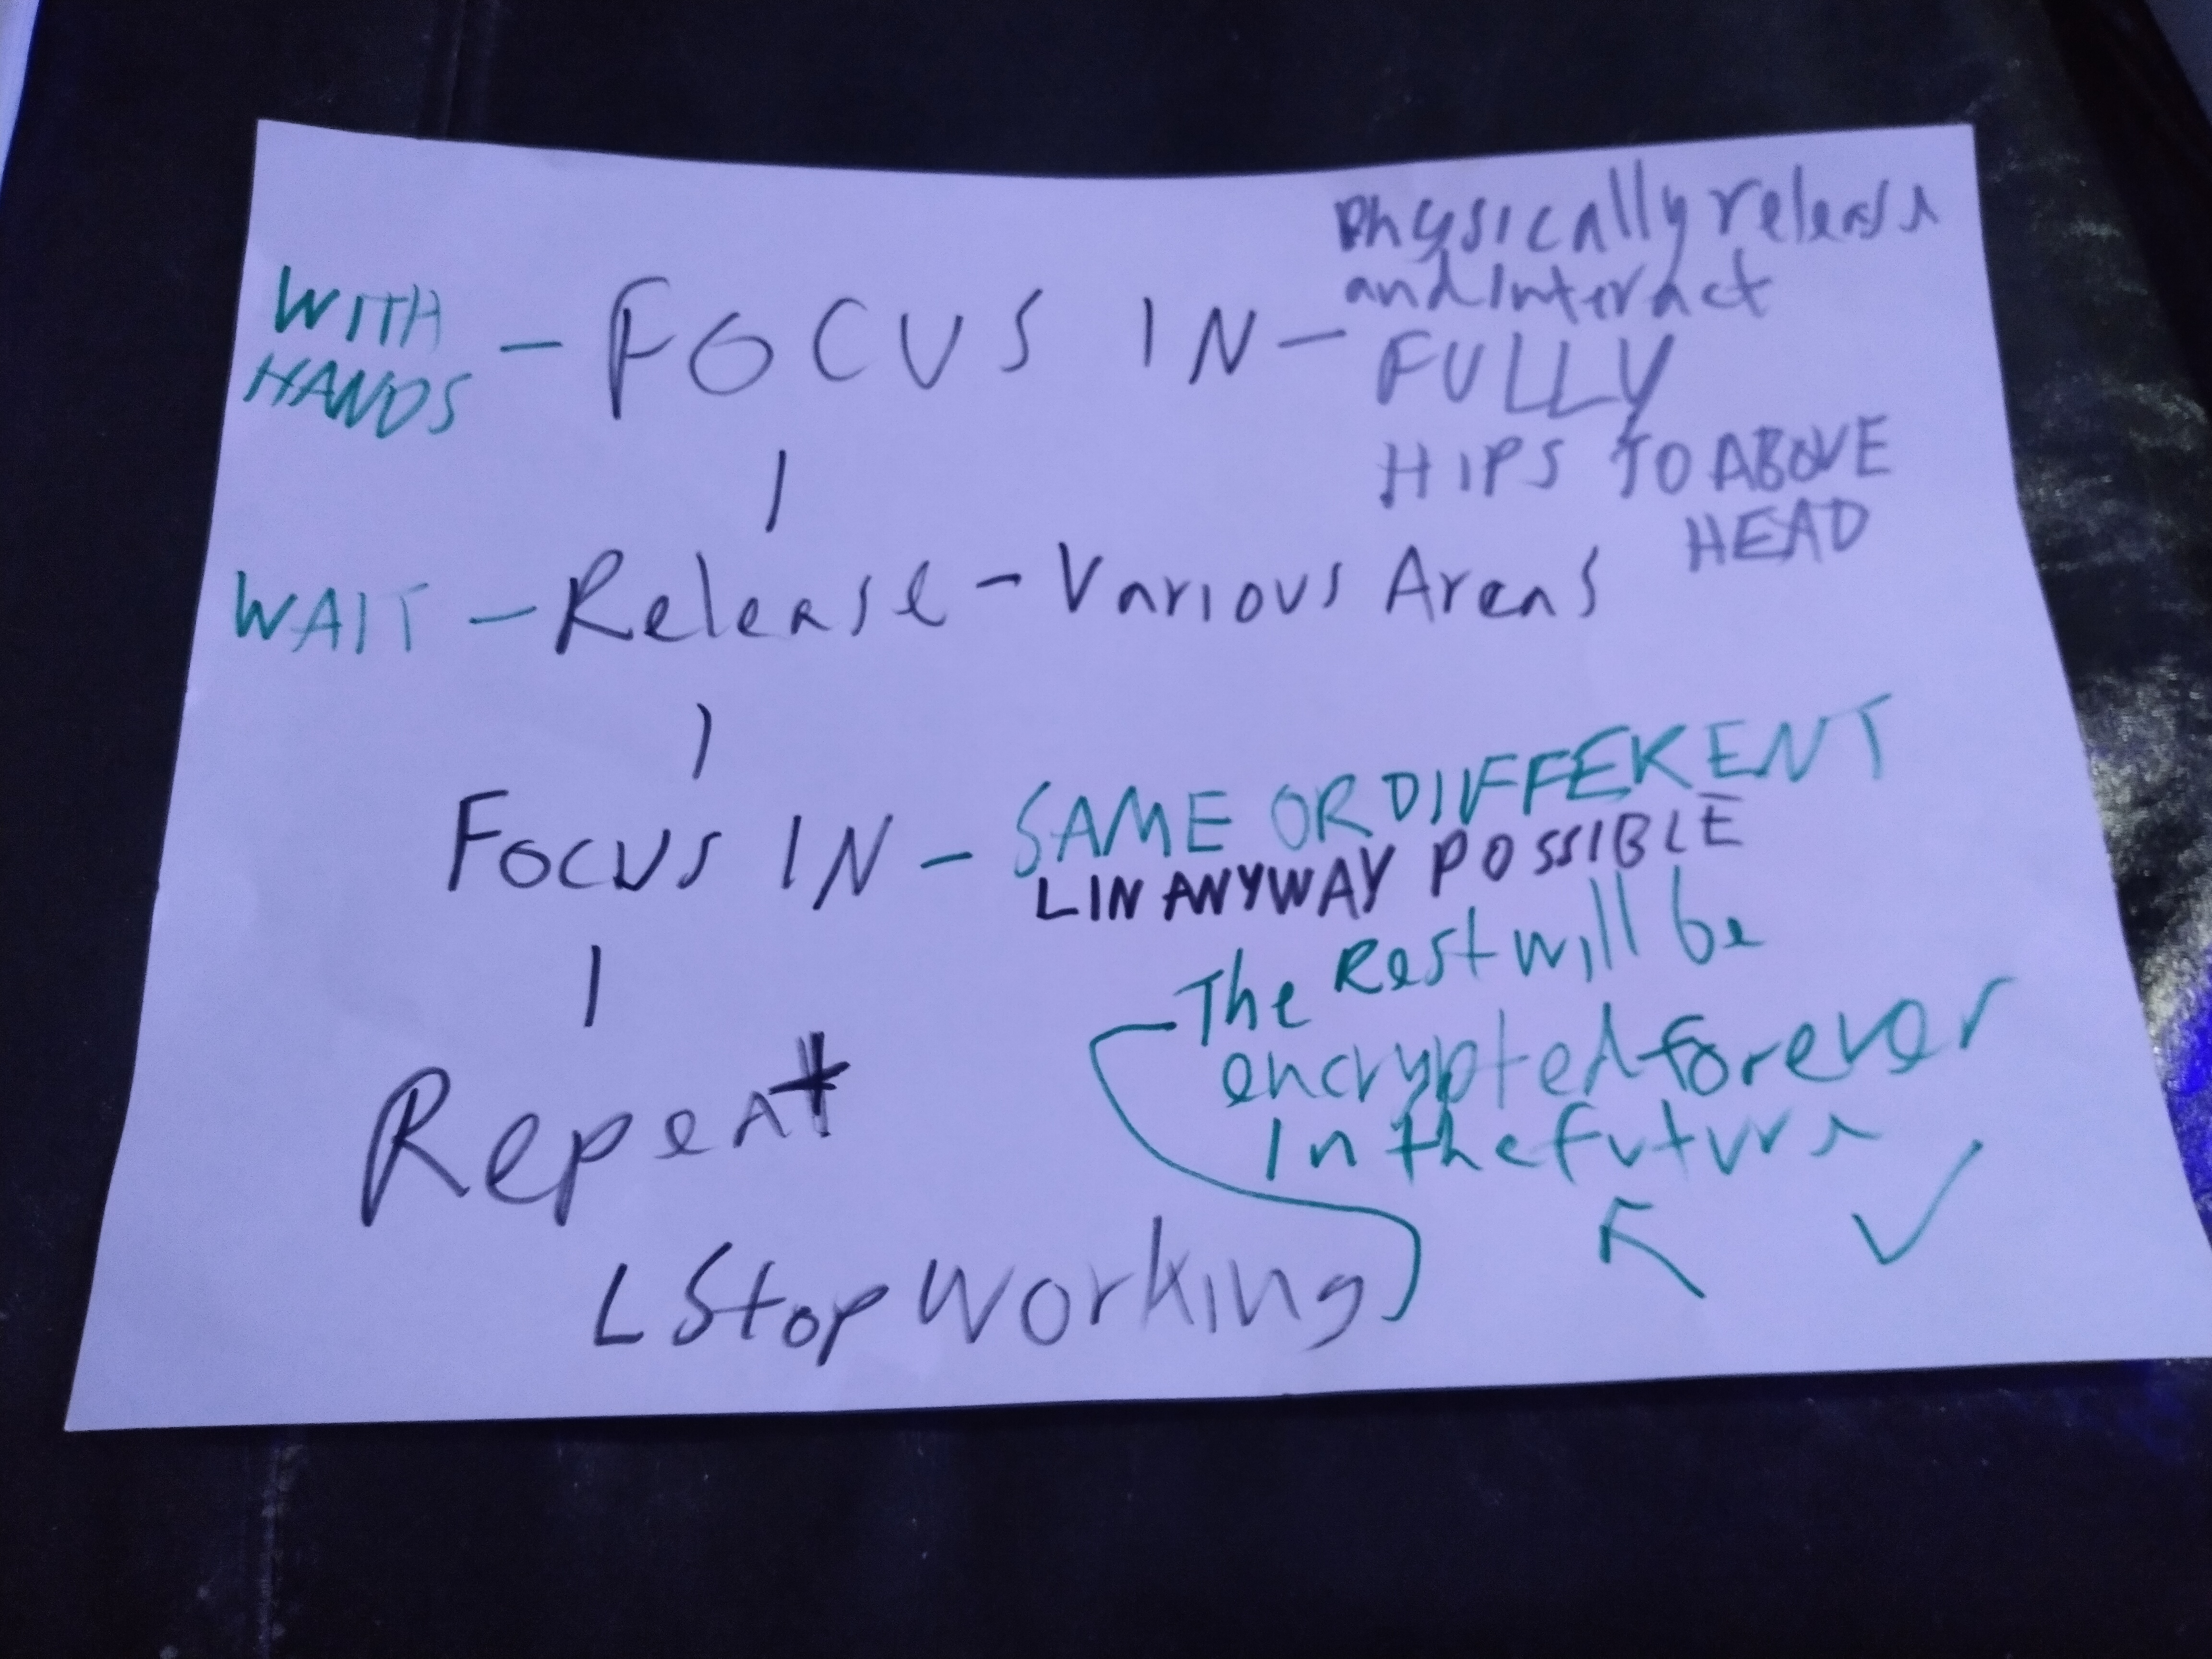 Physically release
and Interact
WITH
HANDS - FOCUS IN - FULLY
HIPS TO ABOVE
HEAD
WAIT - Release - Various Areas
Focus IN - SAME OR DIFFERENT
L IN ANYWAY POSSIBLE
The Rest will be
encrypted forever
In the future
Repeat
L Stop Working